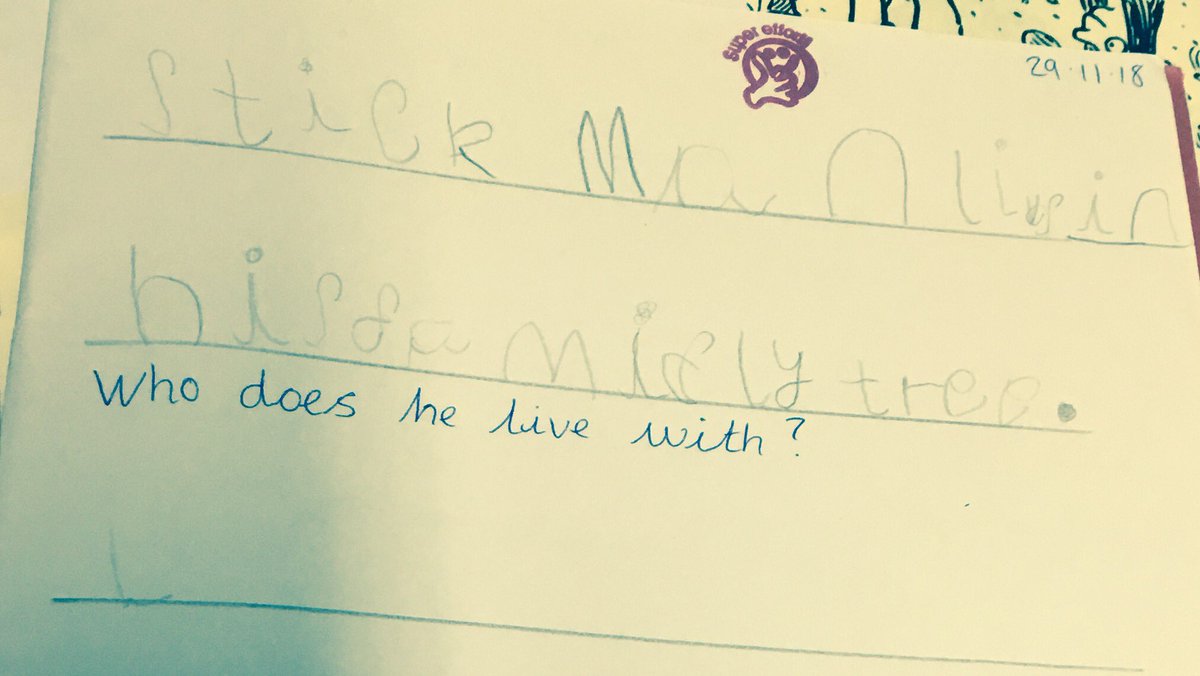 super effort!
29.11.18
Stick Man livs in
his family tree.
Who does he live with?